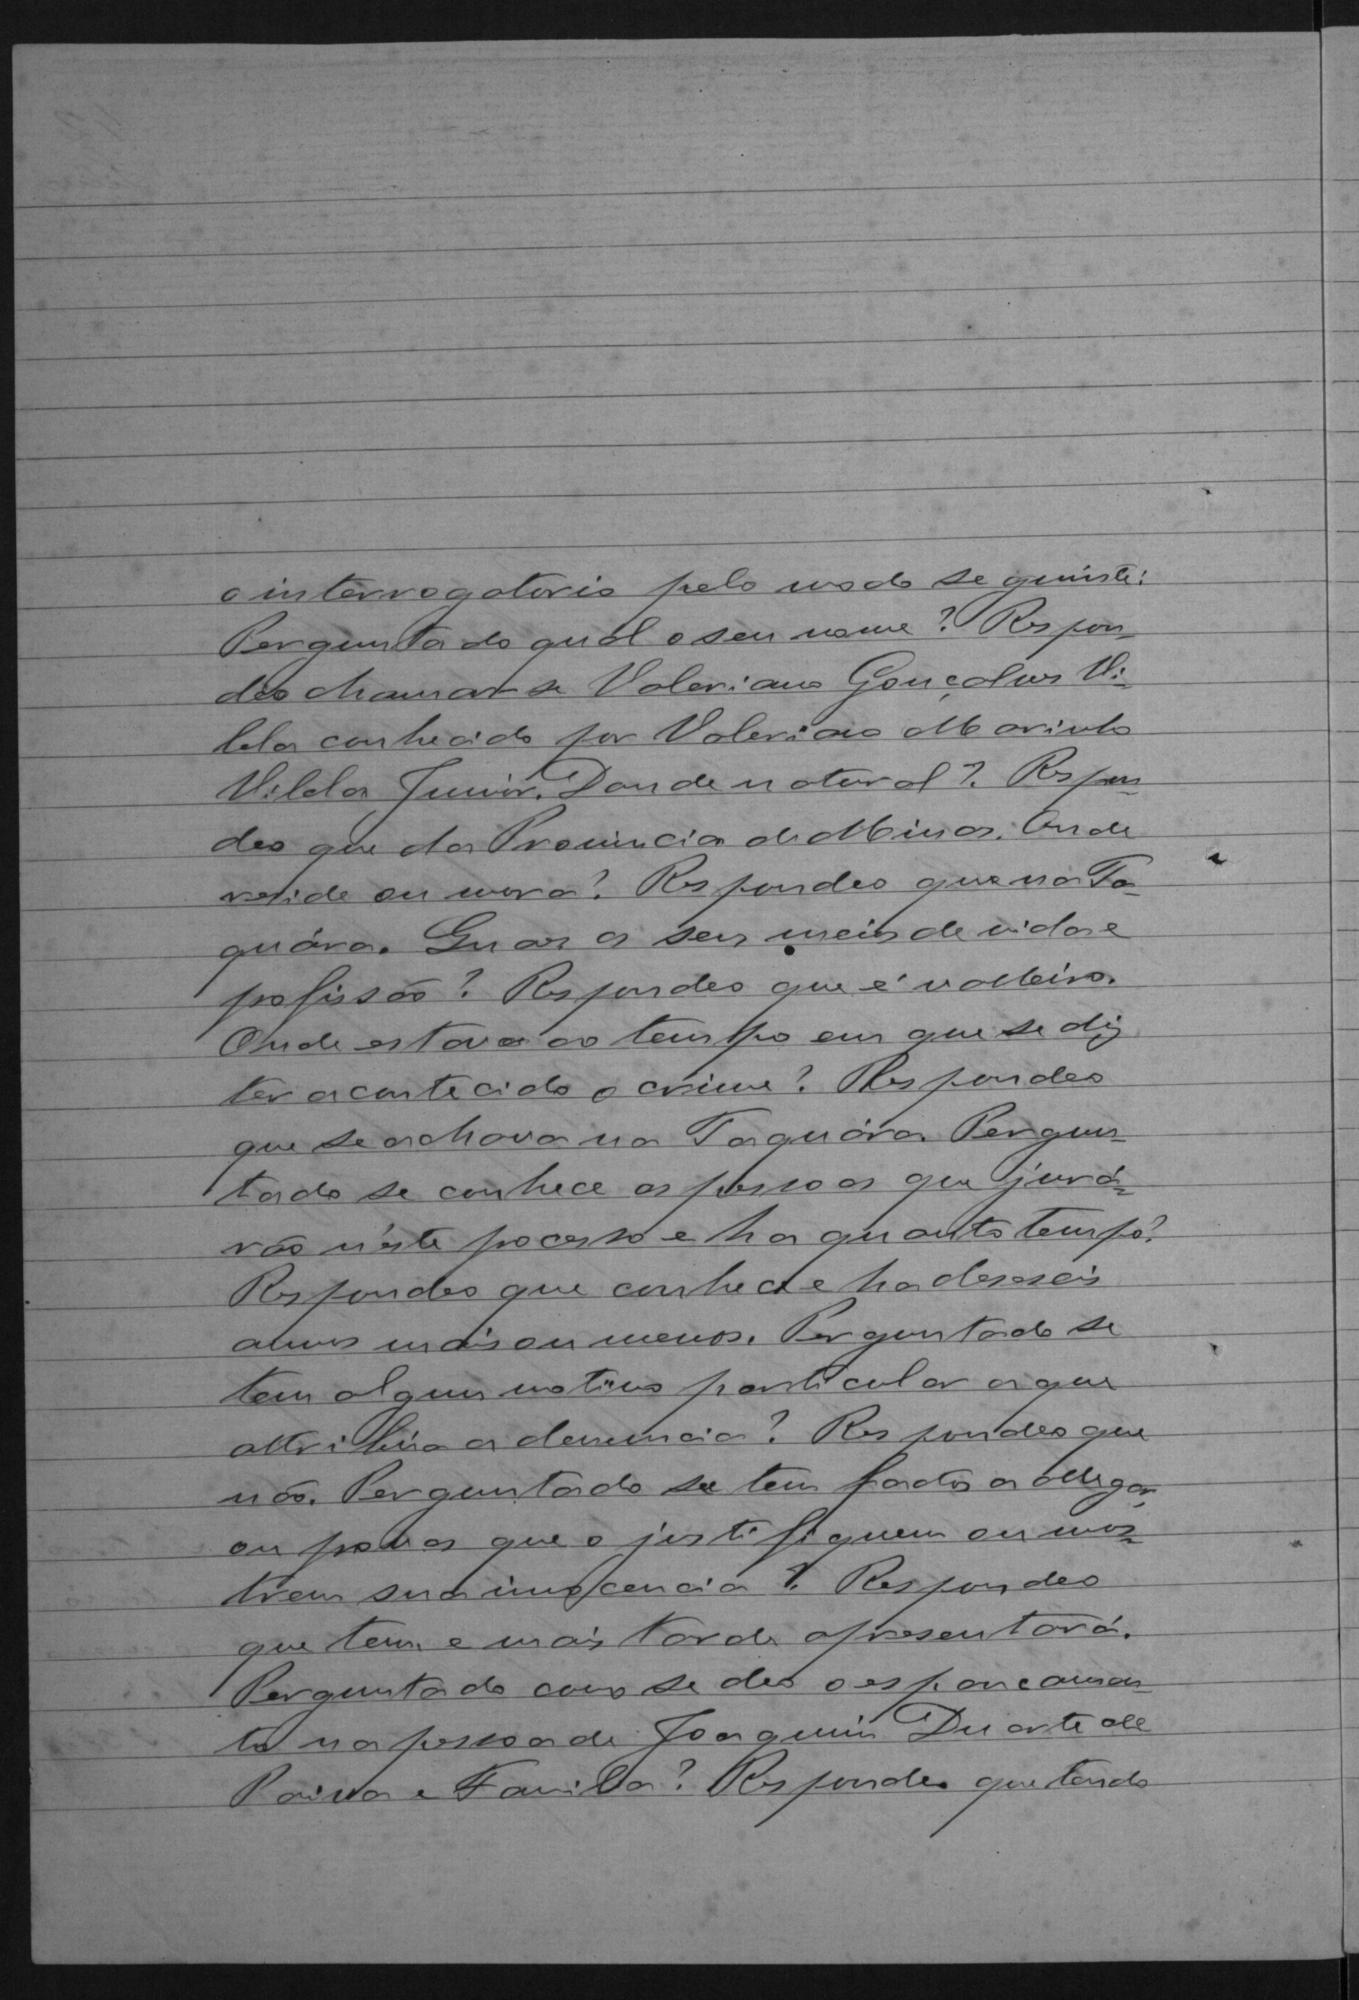 o interrogatorio pelo modo seguinte:
Perguntado qual o seu nome? Respon-
deo chamar-se Valeriano Gonçalves Vi-
lela conhecido por Valeriano Marinho
Vilela Junior. Donde natural? Respon-
deo que da Provincia de Minas. Onde
reside ou mora? Respondeo que na Ta-
quára. Quaes os seus meios de vida e
pofissão? Respondeo que é
Onde estava ao tempo em que se diz
ter acontecido o crime? Respondeo
que se achava na Taquára. Pergun-
tado se conhece as pessoas que jurá-
rão n'este pocesso e ha quanto tempo?
Respondeo que conhece e ha deseseis
annos mais ou menos. Perguntado se
tem algum motivo particular a que
attribúa a denuncia? Respondeo que
não. Perguntado se tem factos a allegar
ou povas que o justifiquem ou mos-
trem sua innocencia? Respondeo
que tem e mais tarde apresentará.
Perguntado como se deo o espancamen-
to na pessoa de Joaquim Duarte de
Paiva e Familia? Respondeo que tendo